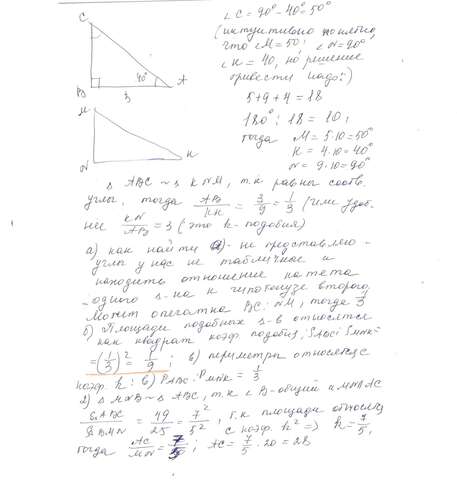 C
40°
B
3
A
M
N
K
∠C = 90° - 40° = 50°
(интуитивно понятно,
что ∠M = 50; ∠N = 90°,
∠K = 40, но решение
привести надо:)
5 + 9 + 4 = 18
180° : 18 = 10;
тогда M = 5·10 = 50°
K = 4·10 = 40°
N = 9·10 = 90°
△ ABC ~ △ KNM, т.к равны соотв.
углы, тогда AB/KN = 3/9 = 1/3 (или удоб-
нее KN/AB = 3 (это k-подобия)
а) как найти а) - не представляю -
углы у нас не табличные и
находить отношение катета
одного △-на к гипотенузе второго
Может опечатка BC:NM, тогда 1/3
б) Площади подобных △-в относятся
как квадрат коэф. подобия; S ABC : S MNK =
= (1/3)² = 1/9; в) периметры относятся
коэф. k: в) P ABC : P MNK = 1/3
2) △ MNB ~ △ ABC, т.к ∠B - общий и MN∥AC
S ABC / S BMN = 49/25 = 7²/5², т.к площади относят
с коэф. k² => k = 7/5,
тогда AC/MN = 7/5; AC = 7/5 · 20 = 28